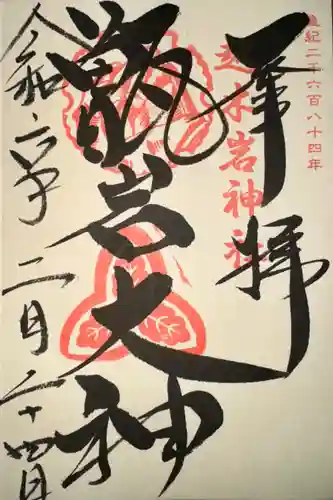 皇紀二千六百八十四年
奉拝
越木岩神社
甑岩大神
令和六年二月二十四日